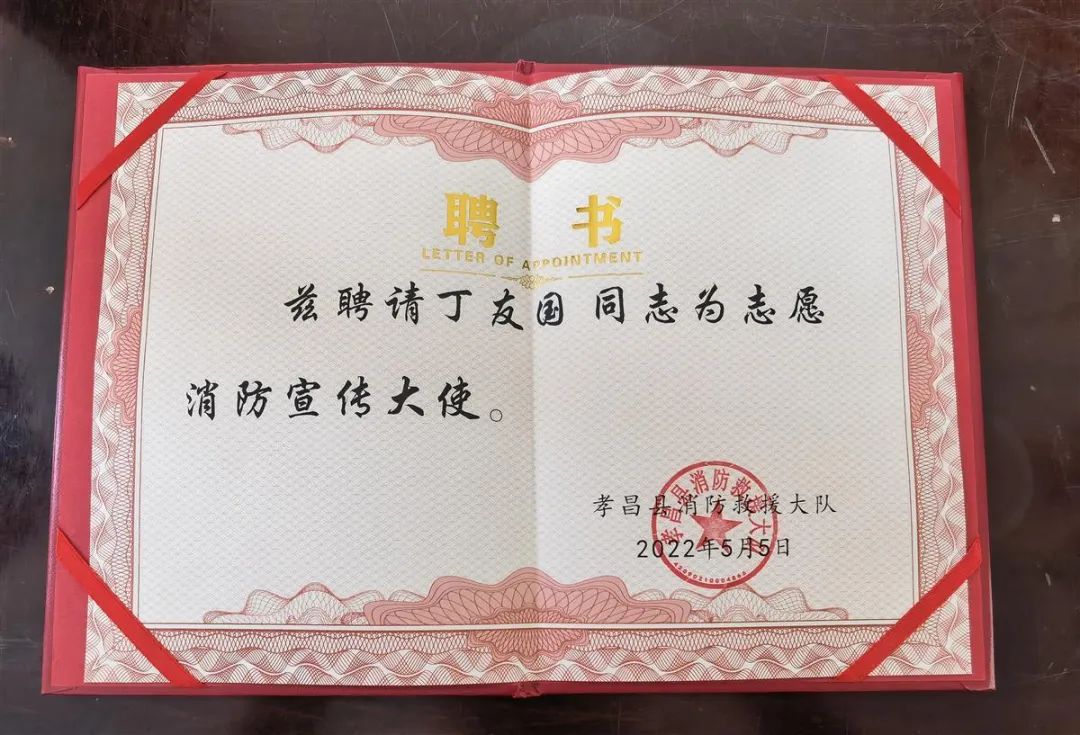 聘 书
LETTER OF APPOINTMENT
兹聘请丁友国 同志为志愿
消防宣传大使。
孝昌县消防救援大队
2022年5月5日
孝昌县消防救援大队